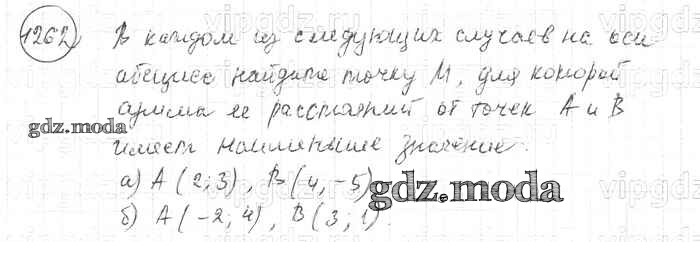 1262) В каждом из следующих случаев на оси
абсцисс найдите точку М, для которой
сумма ее расстояний от точек А и В
имеет наименьшее значение.
а) А (2; 3), В (4, -5)
б) А (-2; 4), В (3; 1).
gdz.moda
gdz.moda
vipgdz.ru
vipgdz.ru
vipgdz.ru
vipgdz.ru